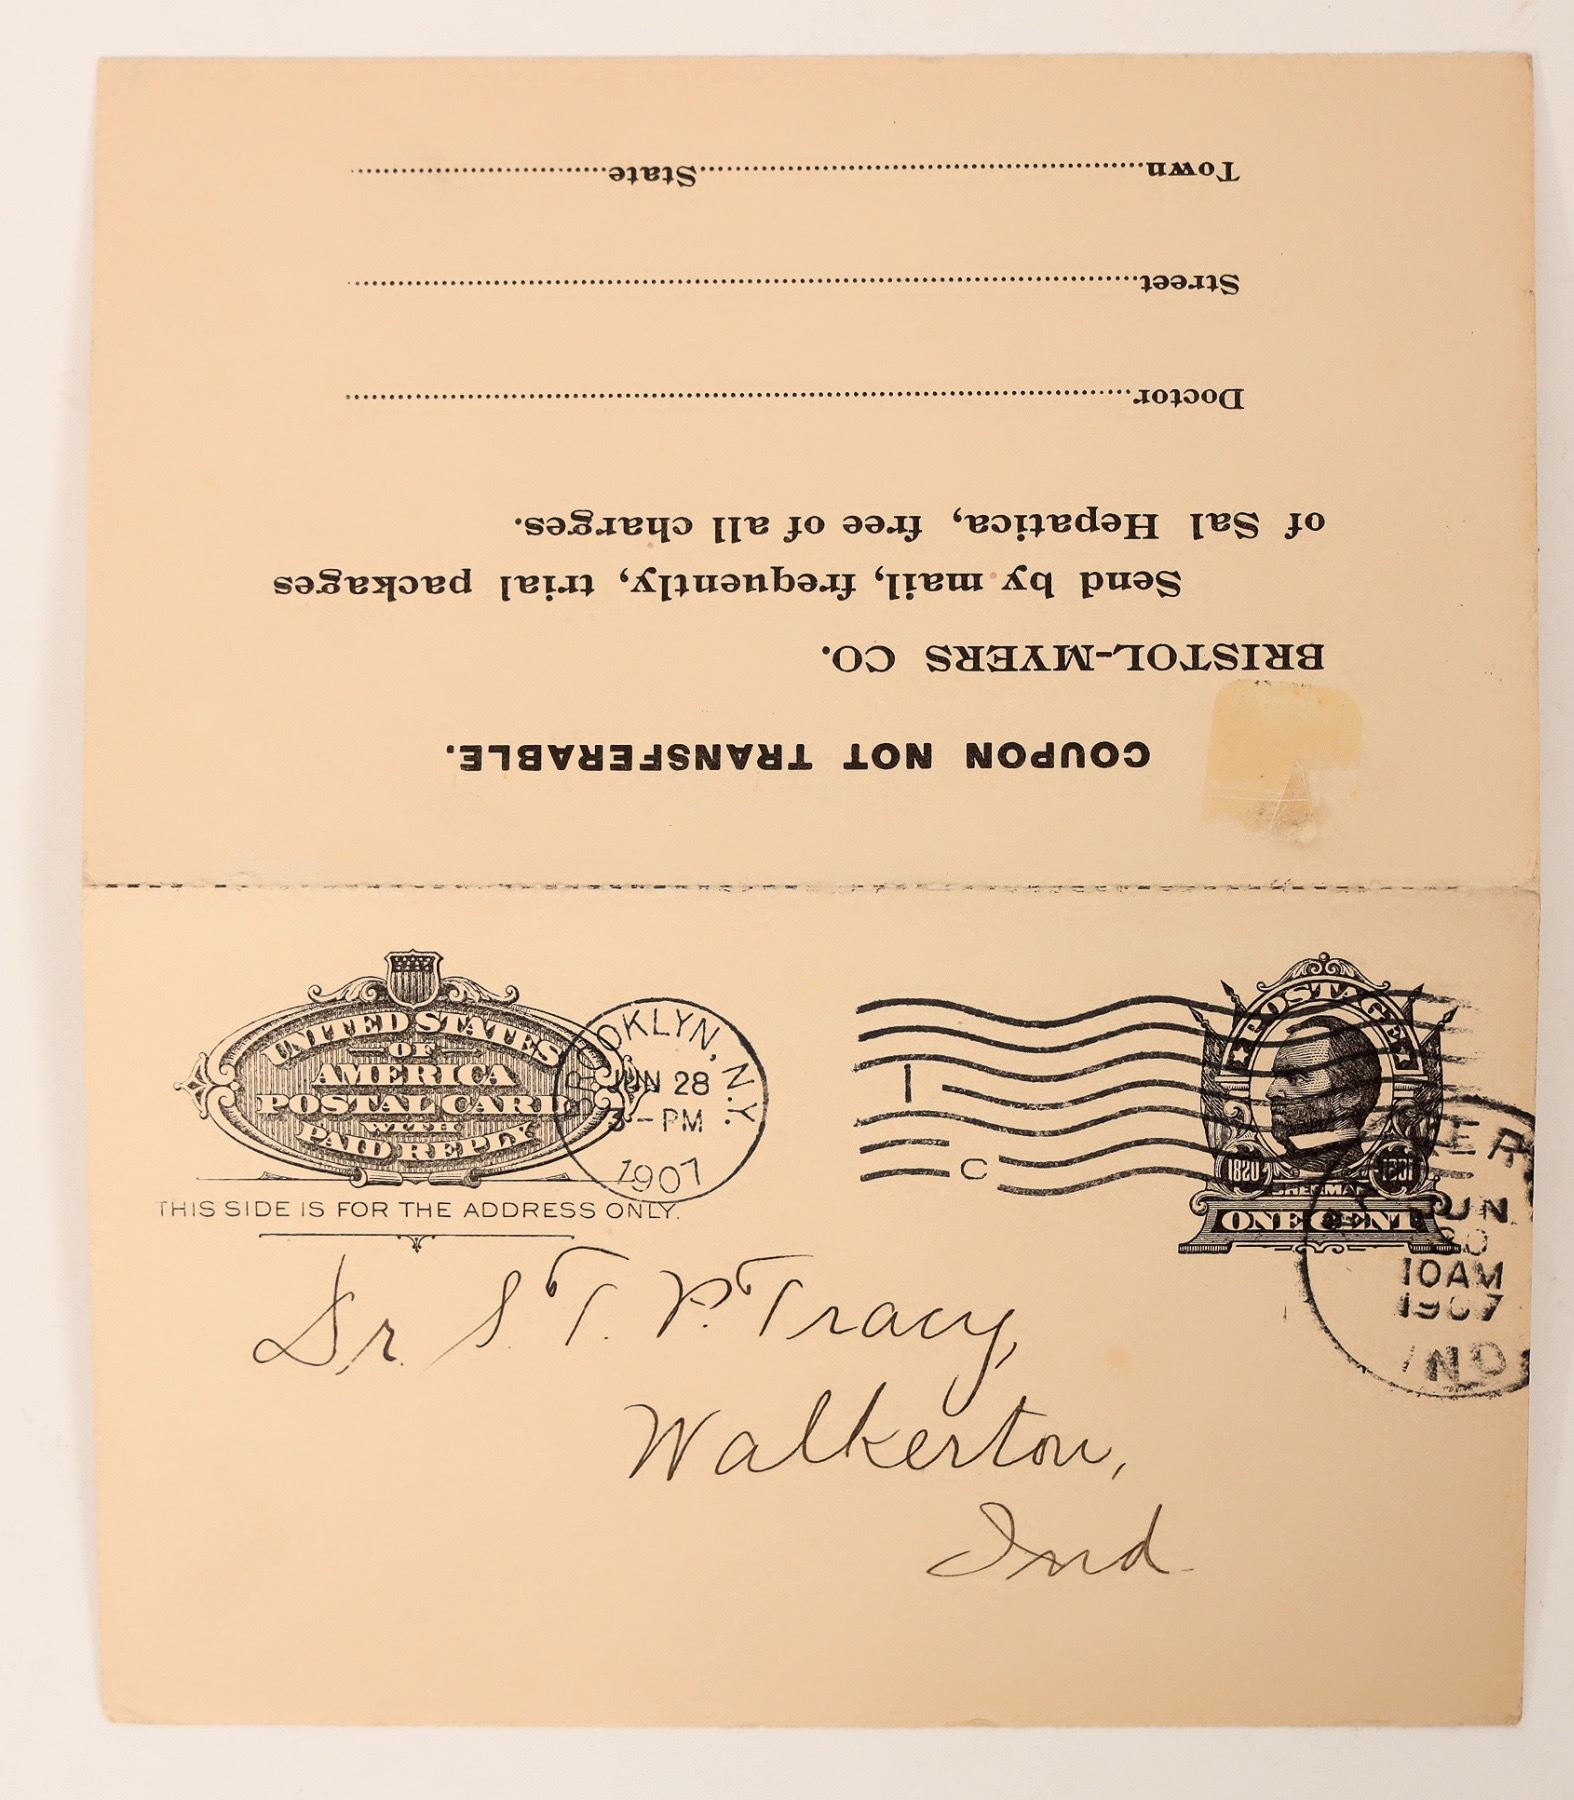 COUPON NOT TRANSFERABLE.
BRISTOL-MYERS CO.
Send by mail, frequently, trial packages
of Sal Hepatica, free of all charges.
Doctor
Street
Town State
UNITED STATES
OF
AMERICA
POSTAL CARD
WITH
PAID REPLY
THIS SIDE IS FOR THE ADDRESS ONLY.
BROOKLYN, N.Y.
JUN 28
3-PM
1907
1
C
POSTAGE
1820 1891
SHERMAN
ONE CENT
JUN
30
10AM
1907
IND
Dr. S. T. P. Tracy,
Walkerton,
Ind.